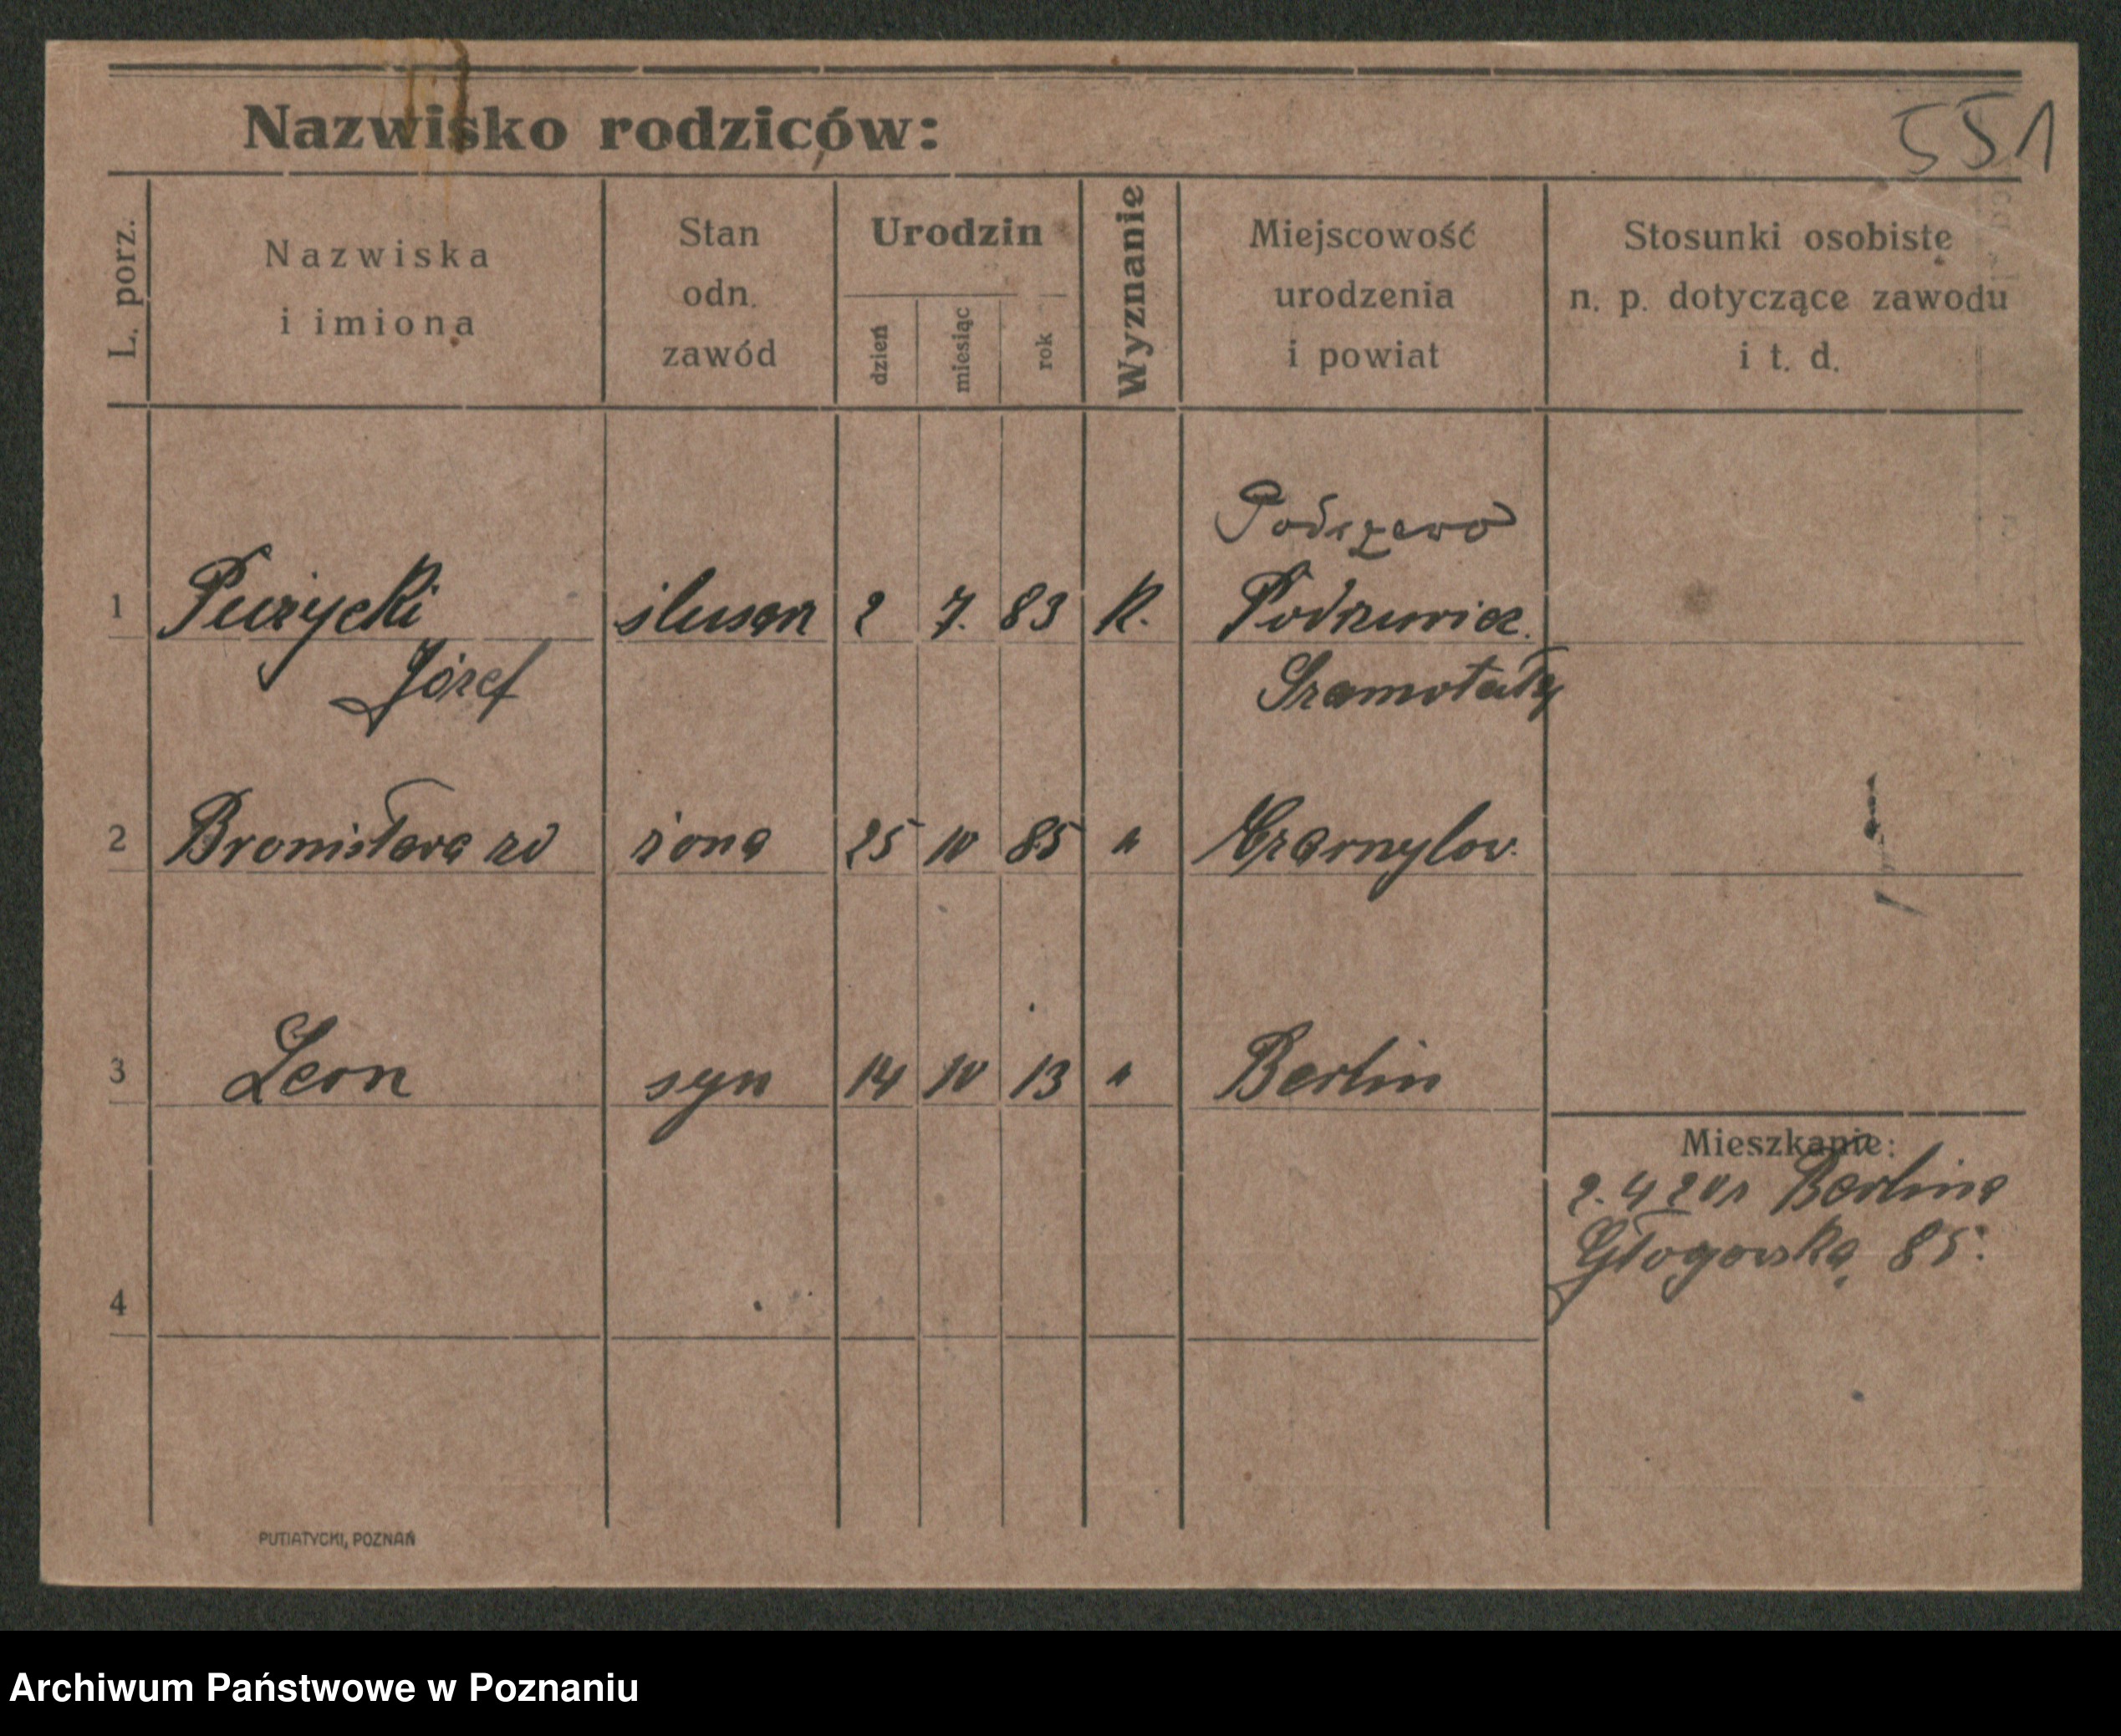 Nazwisko rodziców:
551
L. porz.
Nazwiska
i imiona
Stan
odn.
zawód
Urodzin
dzień
miesiąc
rok
Wyznanie
Miejscowość
urodzenia
i powiat
Stosunki osobiste
n. p. dotyczące zawodu
i t. d.
1 Pużycki ślusarz 2 7. 83 K.
Józef
Szamotuły
2 Bronisława żona 25 10 85 "
3 Leon syn 14 10 13 " Berlin
Mieszkanie:
2. 4 20 z Berlina
Głogowska 85.
4
PUTIATYCKI, POZNAŃ
Archiwum Państwowe w Poznaniu